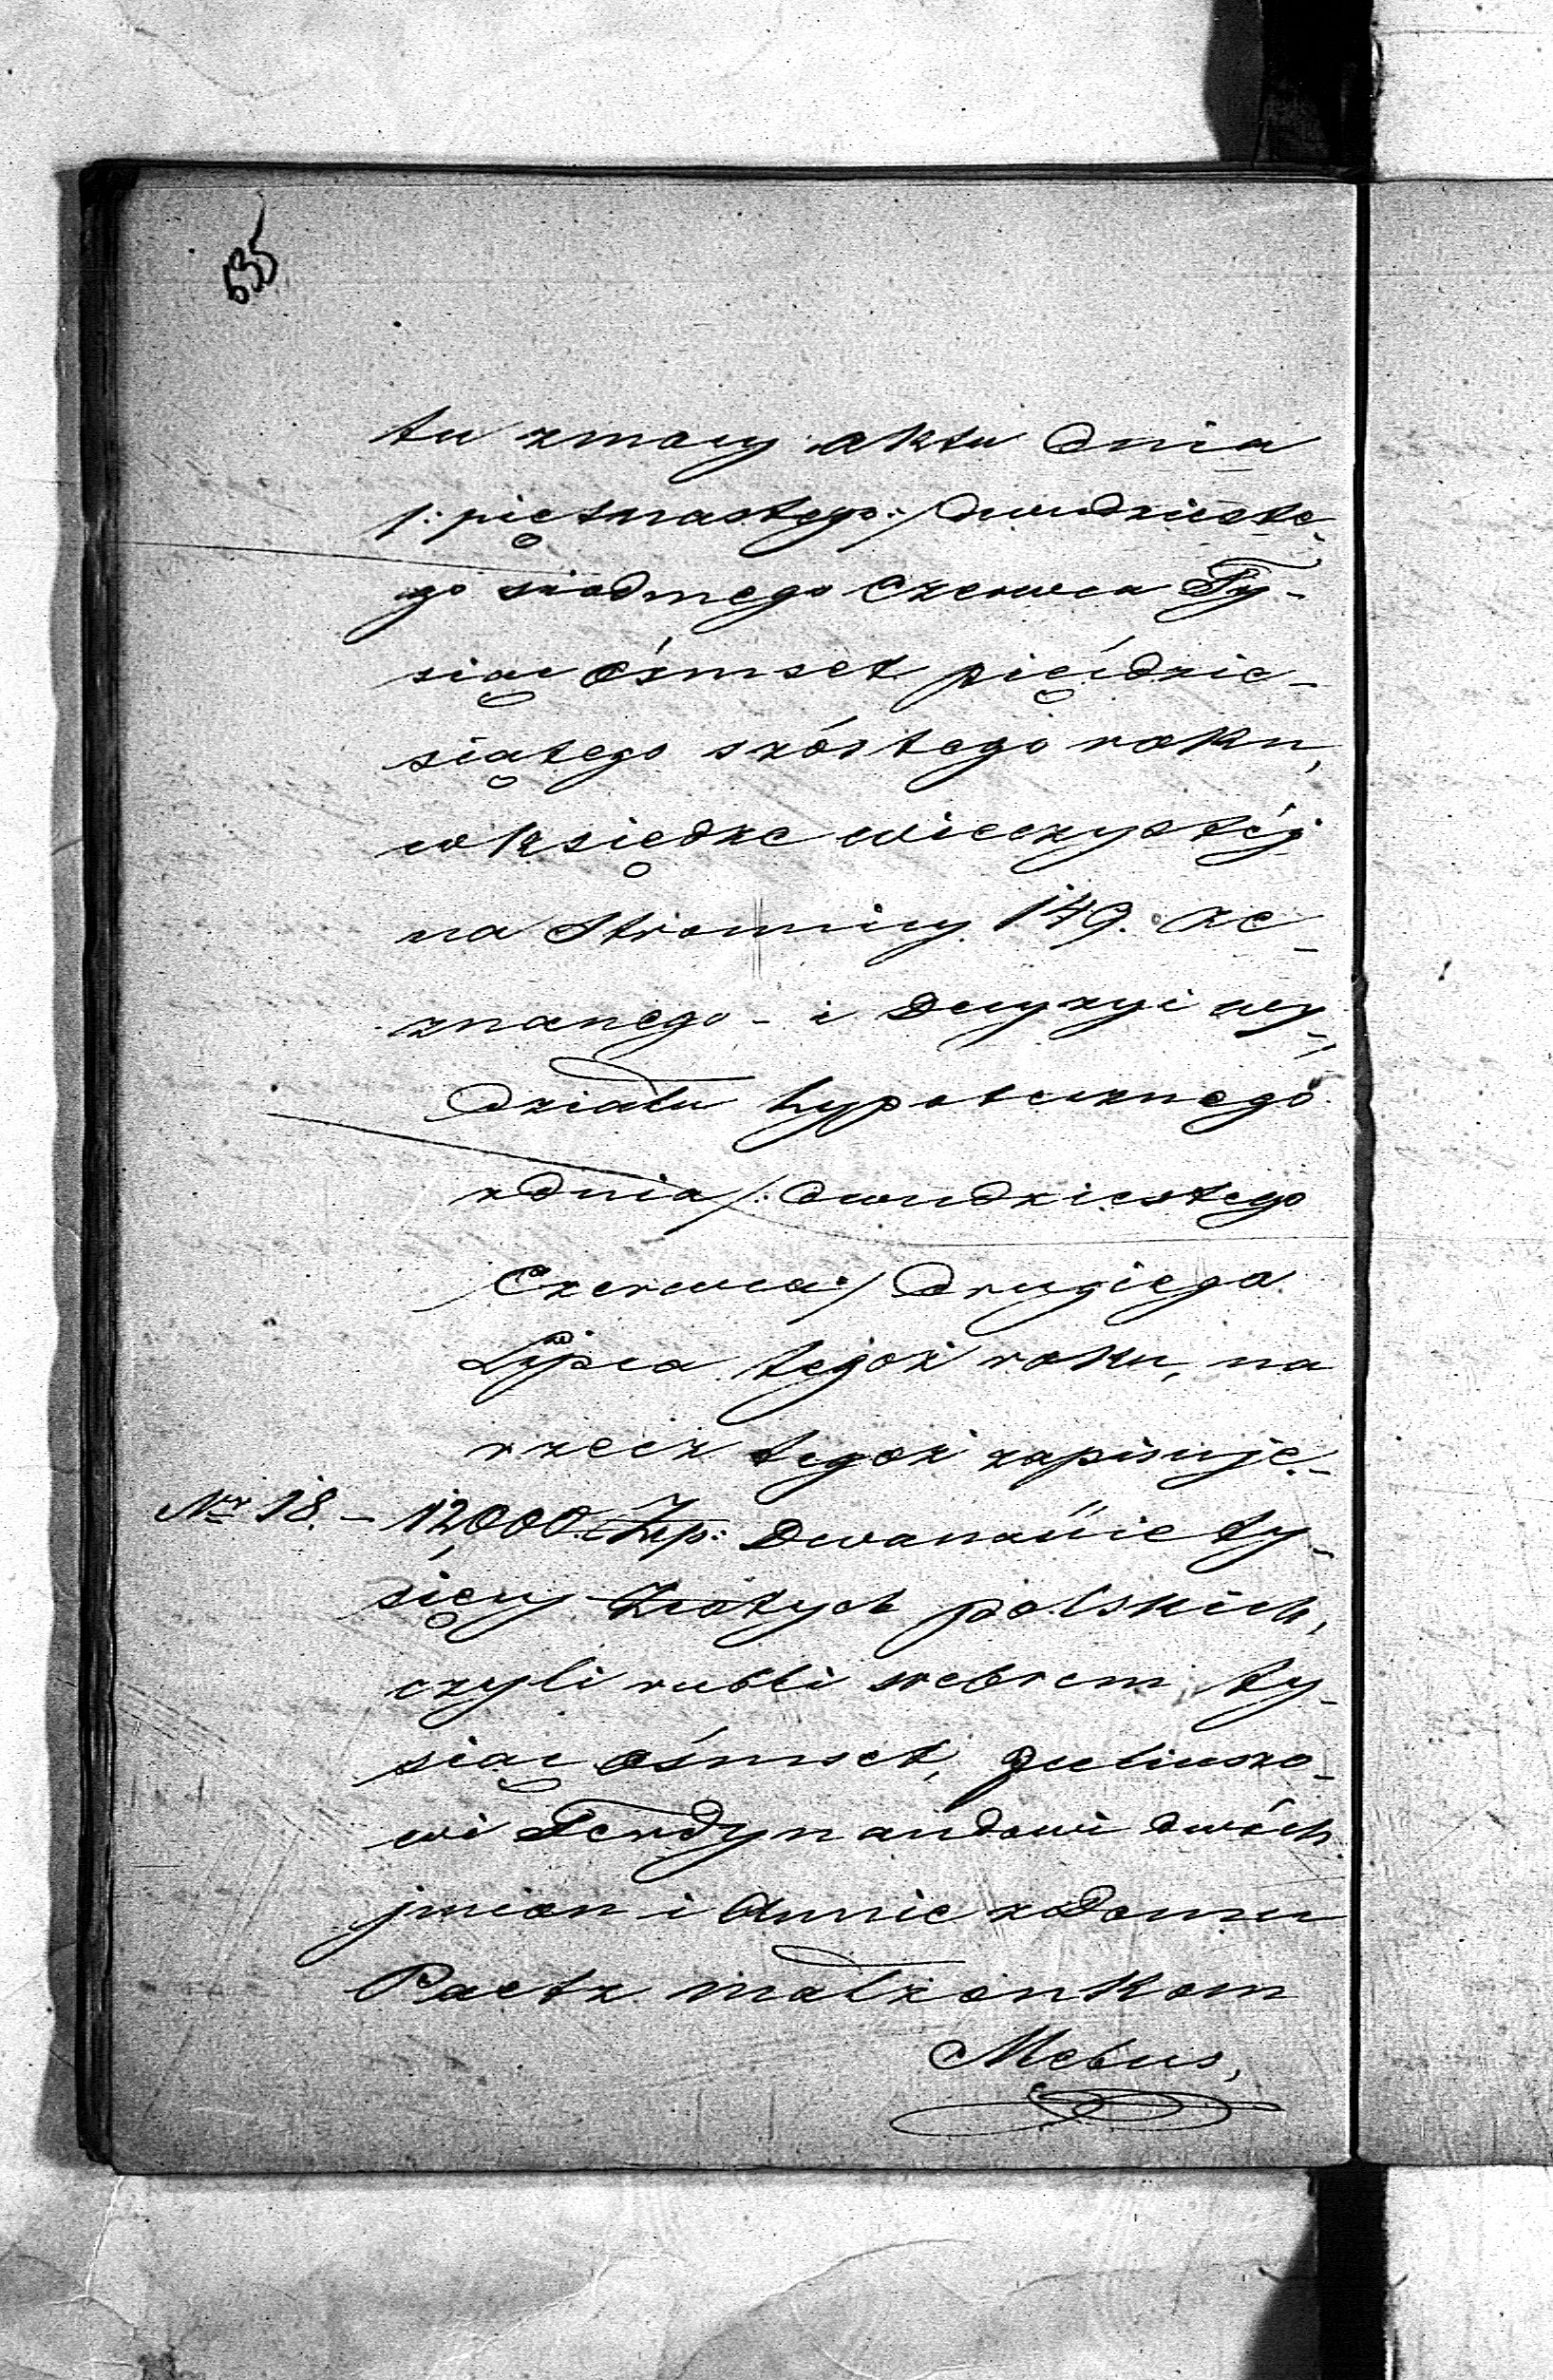 635
tu z mocy aktu dnia
/: piętnastego :/ dwudzieste-
go siodmego Czerwca Ty-
siąc ośmset pięćdzie-
siątego szóstego roku,
w księdze wieczystéj
na Stronnicy 149. ze-
znanego - i Decyzyi wy-
działu hypotecznego
z dnia /: dwudziestego
Czerwca :/ drugiego
Lipca tegoż roku, na
rzecz tegoż zapisuje.-
Nr 18. - 12,000. Złp: Dwanaście ty-
sięcy Złotych polskich,
czyli rubli srebrem ty-
siąc ośmset, Juliuszo-
wi Ferdynandowi dwóch
jmion i Annie z Domu
Paetz małżonkom
Mebus,